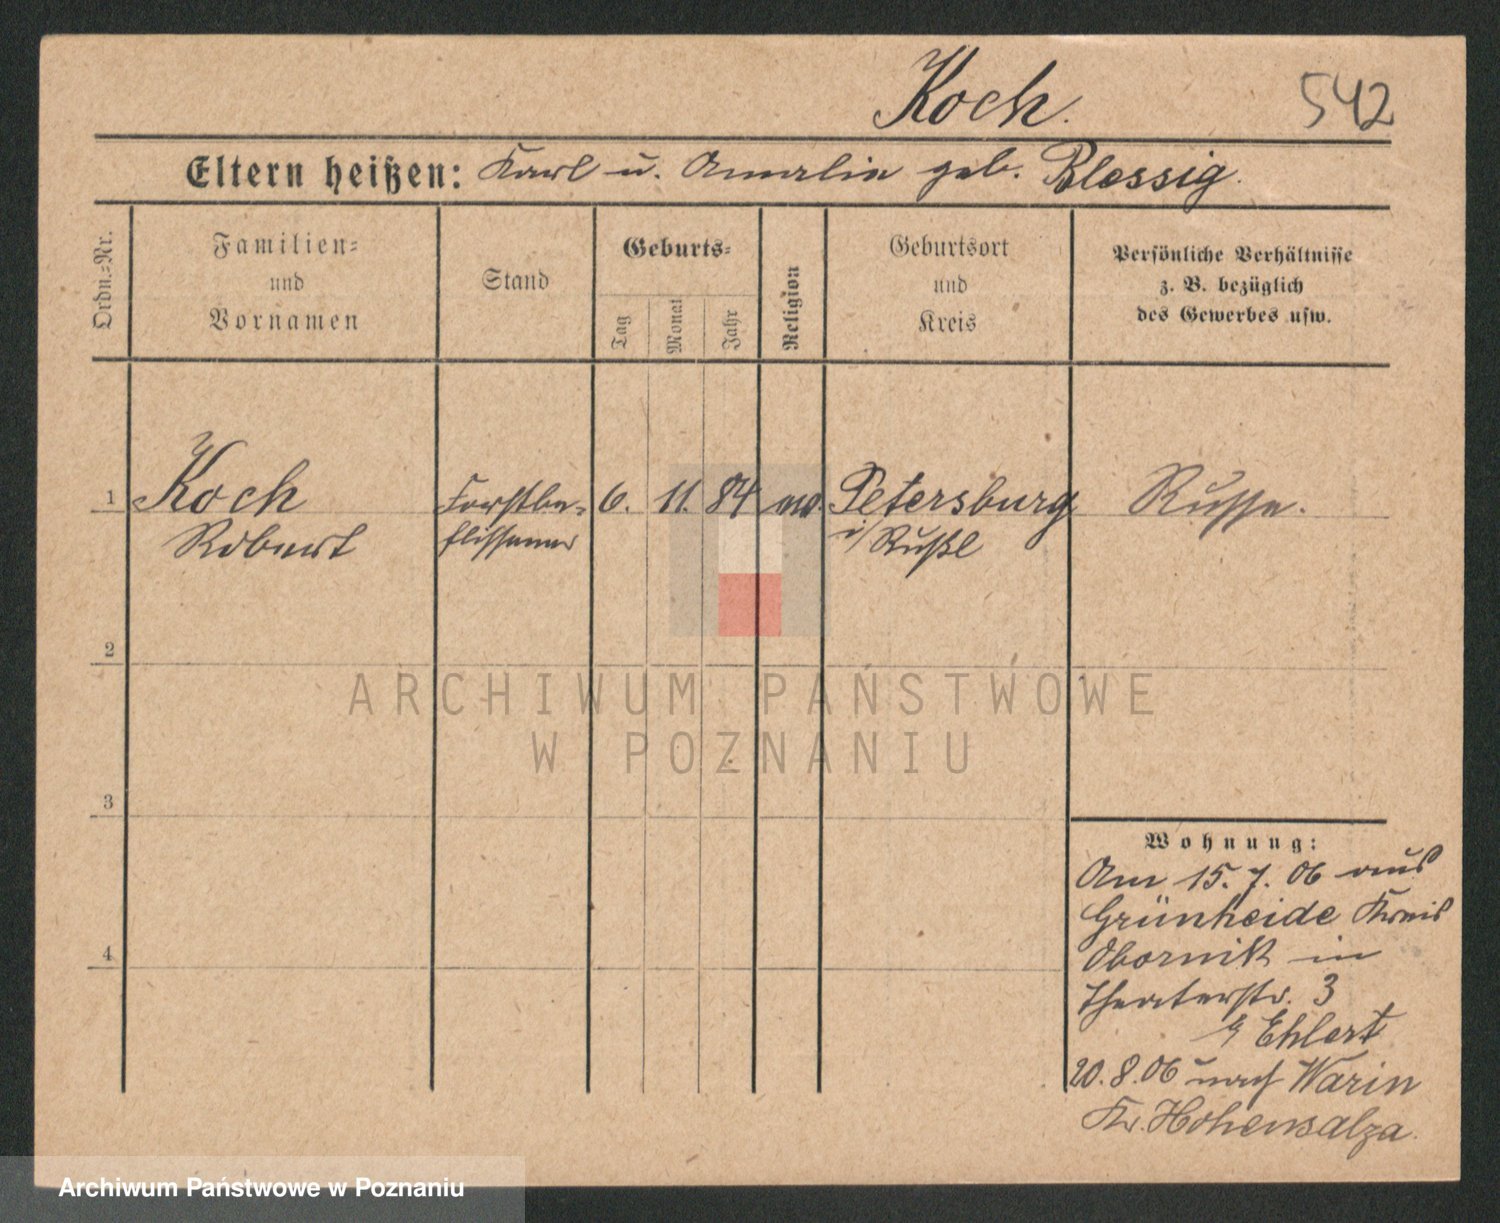 Koch.
542
Eltern heißen: Karl u. Amalie geb. Blessig.
Ordn.=Nr.
Familien=
und
Vornamen
Stand
Geburts=
Tag
Monat
Jahr
Religion
Geburtsort
und
Kreis
Persönliche Verhältnisse
z. B. bezüglich
des Gewerbes usw.
1 Koch Forstbe= 6. 11. 84 ev. Petersburg Russe.
Robert flissener i/Rußl
2
3
4
Wohnung:
Am 15. 7. 06 aus
Grünheide Kreis
Obornik in
Theaterstr. 3
Ehlert
20. 8. 06 nach Warin
Kr. Hohensalza.
ARCHIWUM PAŃSTWOWE
W POZNANIU
Archiwum Państwowe w Poznaniu